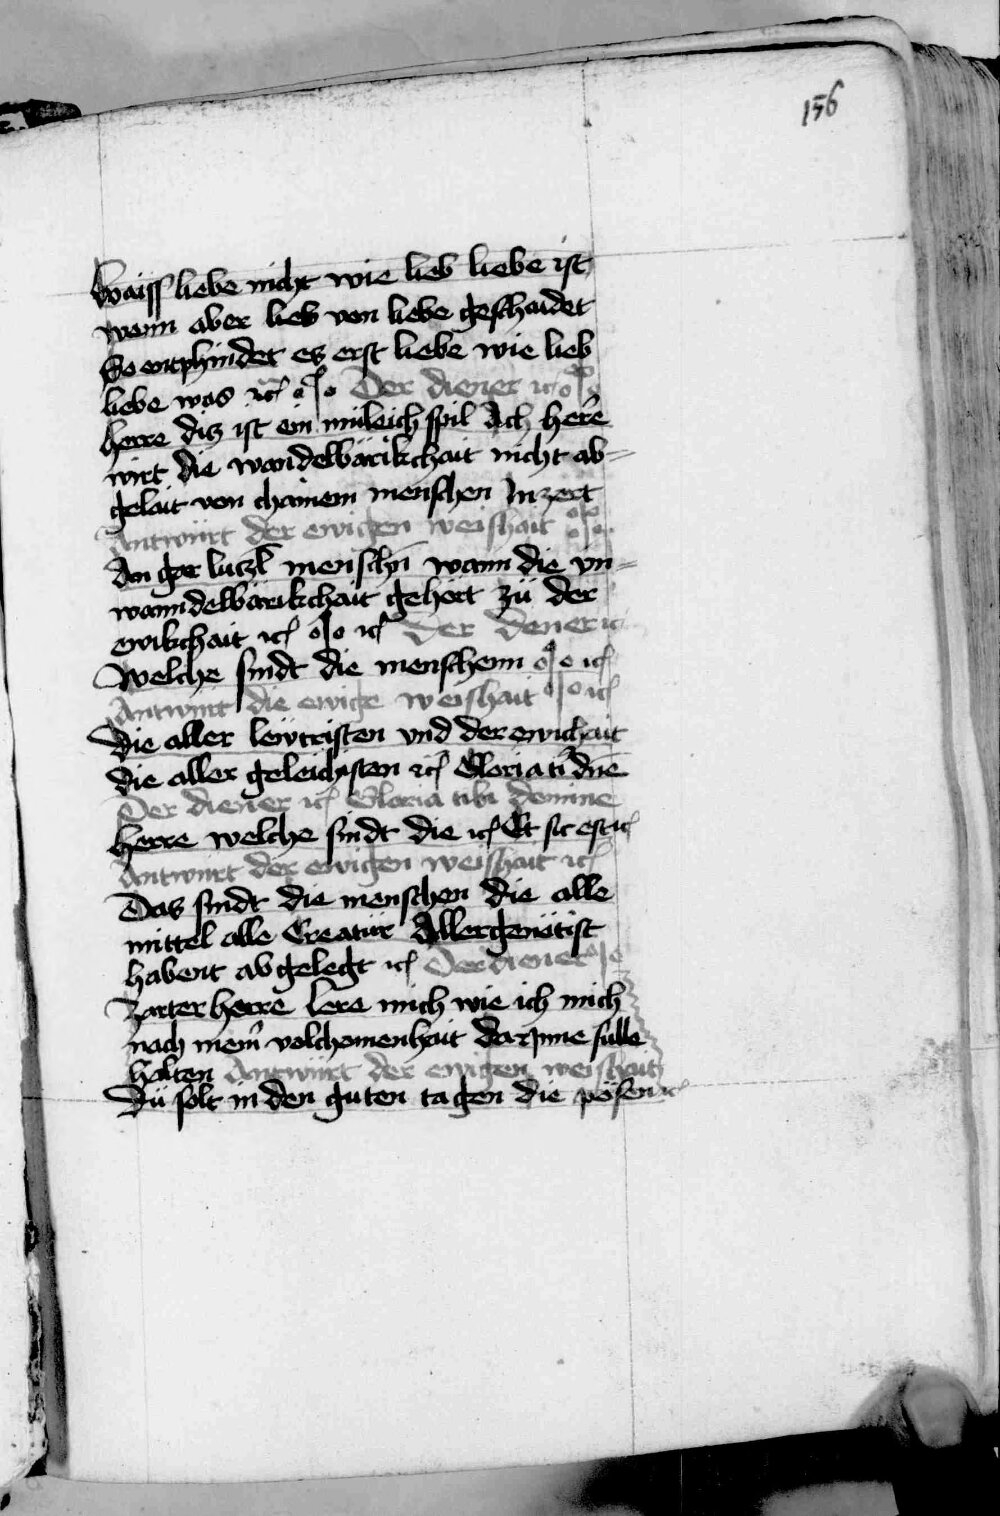 156
Waiss liebe nicht wie lieb liebe ist
wenn aber lieb von liebe geschaidet
So entphindet es erst liebe wie lieb
liebe was ꝛc Der diener ꝛc
herre diz ist ein müleich spil Ach her̄e
wirt die wandelbärikchait nicht ab=
gelait von chainem menschen In zeit
Antwürt der ewigen weishait
An gar luczl menschn̄ wann die vn=
wanndelbärikchait gehört zü der
ewikchait ꝛc ꝛc Der dener ꝛc
Welche sindt die menschenn ꝛc
Antwürt die ewige weishait ꝛc
Die aller lewtristen vnd der ewichait
die aller geleichisten ꝛc Gloria ti dn̄e
Der diener ꝛc Gloria tibi domine
herre welche sindt die ꝛc Et sic est ꝛc
Antwürt der ewigen weishait ꝛc
Das sindt die menschen die alle
mittel alle Creatür Allergenötist
habent abgelegt ꝛc Der diener
Zarter herre lere mich wie ich mich
nach mem̄ volchomenhait darInne sulle
halten Antwürt der ewigen weishait
Dü solt in den guten tagen die pösen ꝛc